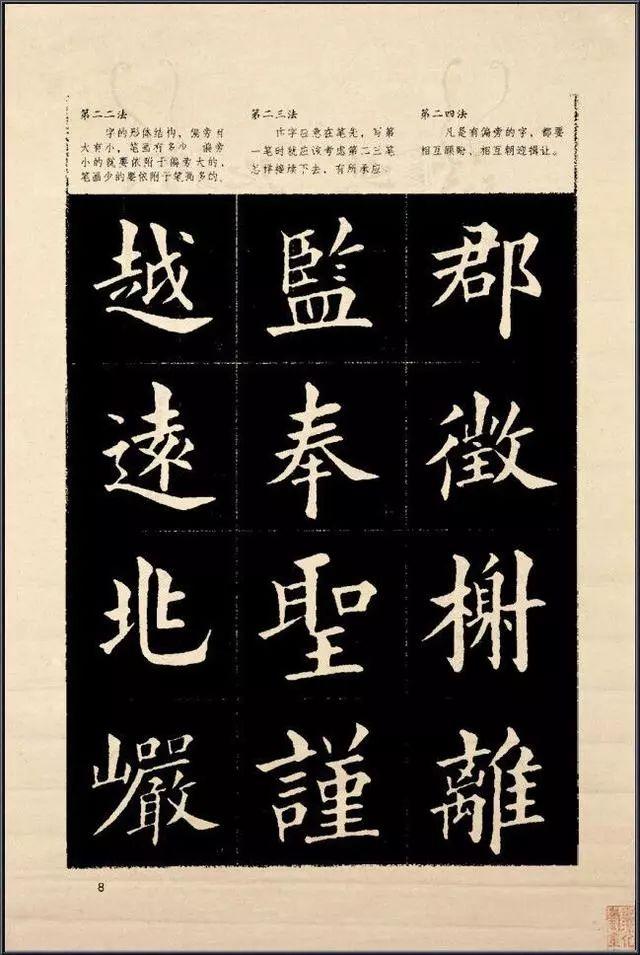 第二二法
字的形体结构，偏旁有
大有小，笔画有多少 偏旁
小的就要依附于偏旁大的，
笔画少的要依附于笔画多的。
第二三法
作字必意在笔先，写第
一笔时就应该考虑第二三笔
怎样接续下去，有所承应
第二四法
凡是有偏旁的字，都要
相互顾盼、相互朝迎揖让。
越遠兆巗
監奉聖謹
郡徵榭離
8